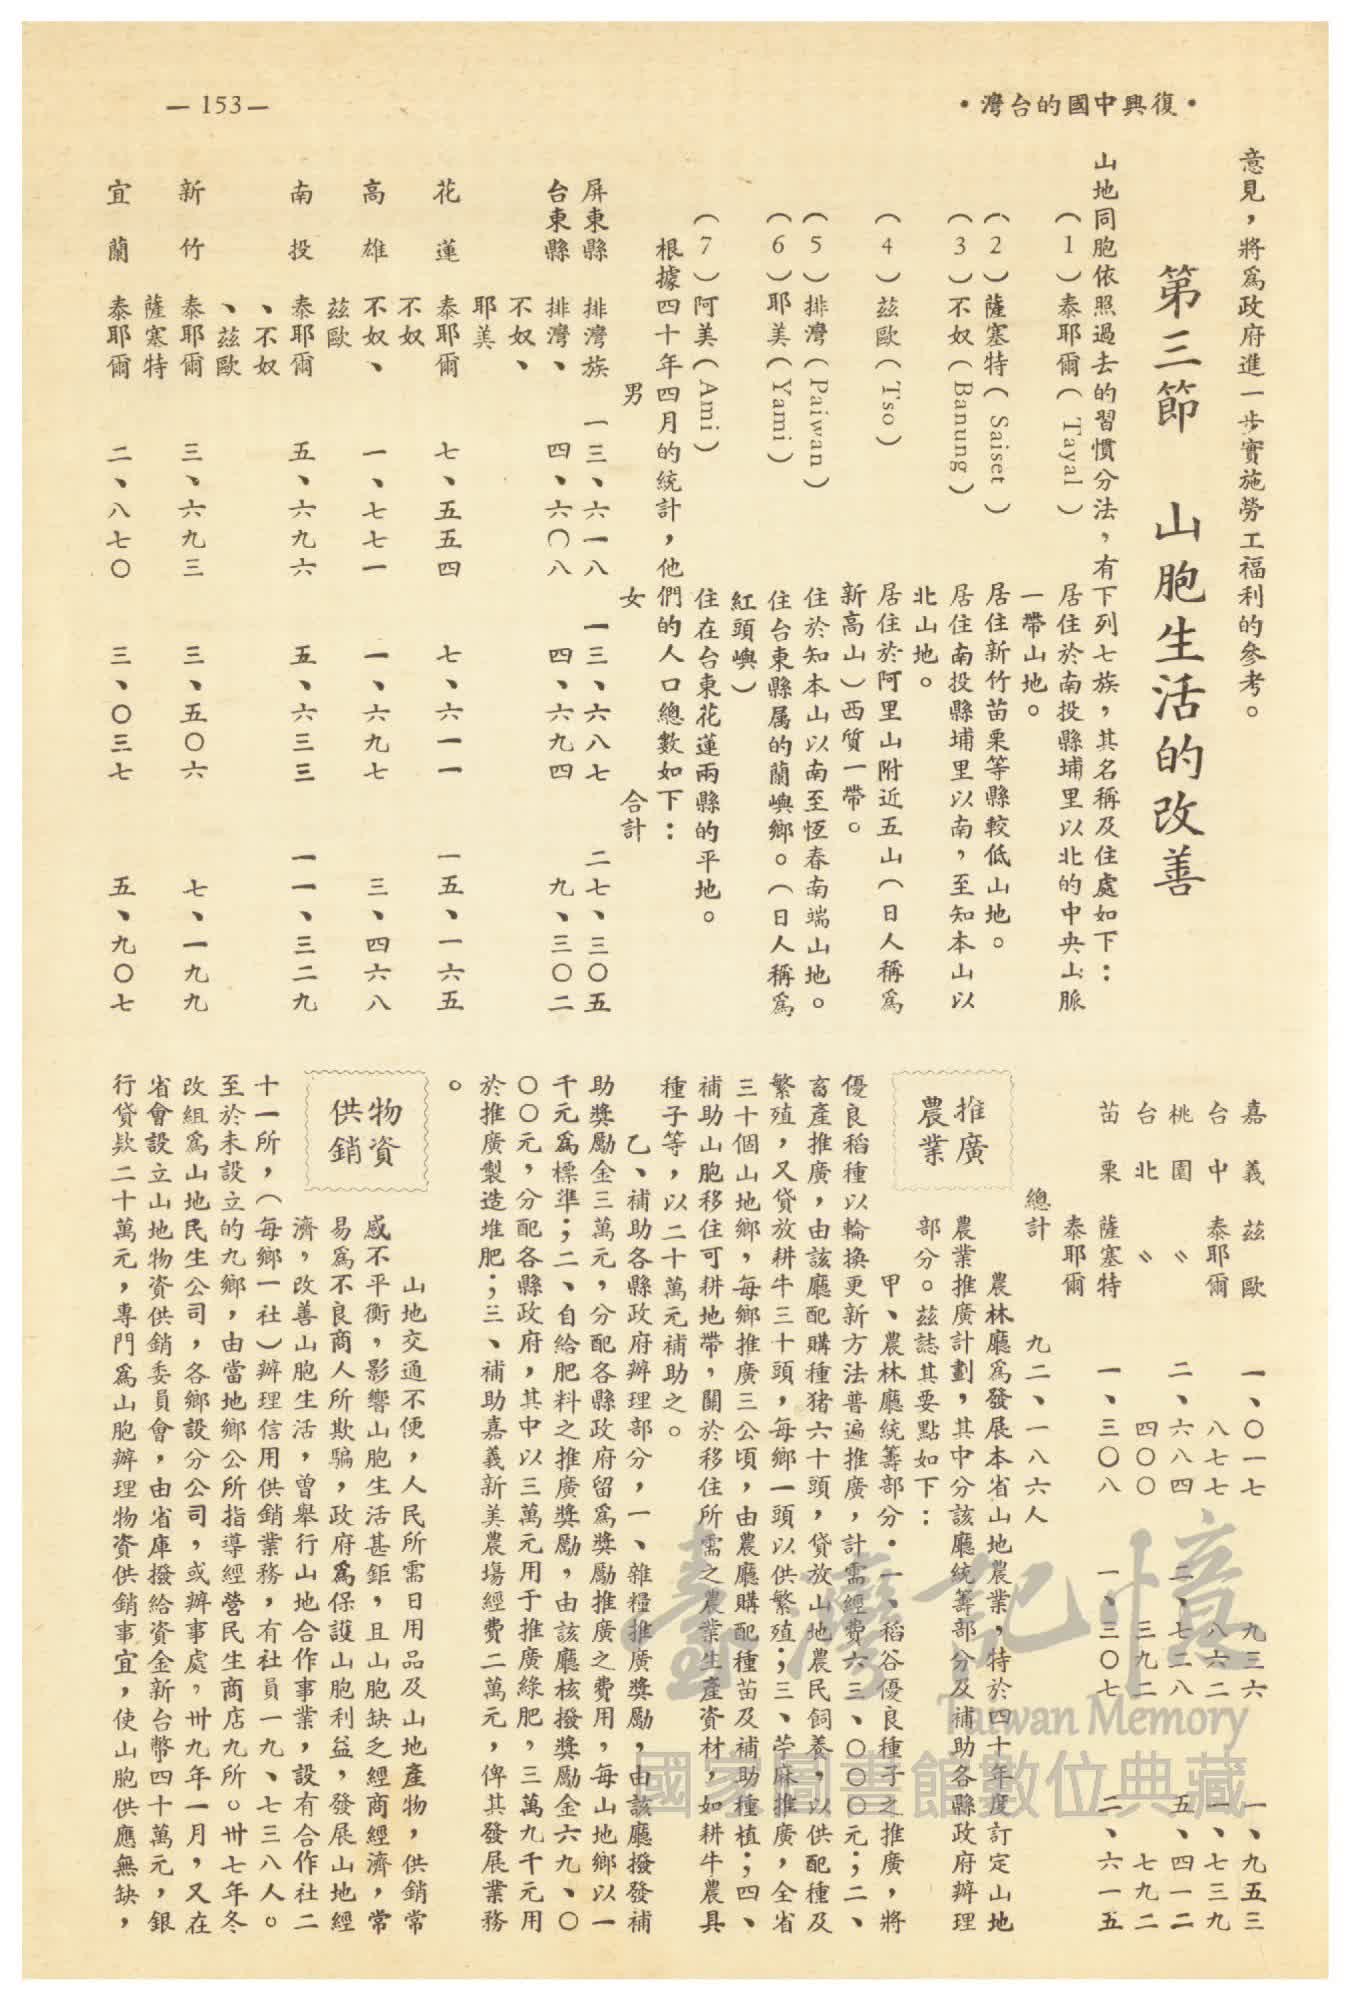 •復興中國的台灣•
—153—
意見，將爲政府進一步實施勞工福利的參考。
第三節　山胞生活的改善
山地同胞依照過去的習慣分法，有下列七族，其名稱及住處如下：
（1）泰耶爾（Tayal）　居住於南投縣埔里以北的中央山脈
一帶山地。
（2）薩塞特（Saiset）　居住新竹苗栗等縣較低山地。
（3）不奴（Banung）　居住南投縣埔里以南，至知本山以
北山地。
（4）茲歐（Tso）　居住於阿里山附近五山（日人稱爲
新高山）西質一帶。
（5）排灣（Paiwan）　住於知本山以南至恆春南端山地。
（6）耶美（Yami）　住台東縣属的蘭嶼鄉。（日人稱爲
紅頭嶼）
（7）阿美（Ami）　住在台東花蓮兩縣的平地。
根據四十年四月的統計，他們的人口總數如下：
男　女　合計
屏東縣　排灣族　一三、六一八　一三、六八七　二七、三〇五
台東縣　排灣、　四、六〇八　四、六九四　九、三〇二
不奴、
耶美
花蓮　泰耶爾　七、五五四　七、六一一　一五、一六五
不奴
高雄　不奴、　一、七七一　一、六九七　三、四六八
茲歐
南投　泰耶爾　五、六九六　五、六三三　一一、三二九
、不奴
、茲歐
新竹　泰耶爾　三、六九三　三、五〇六　七、一九九
薩塞特
宜蘭　泰耶爾　二、八七〇　三、〇三七　五、九〇七
嘉義　茲歐　一、〇一七　九三六　一、九五三
台中　泰耶爾　八七七　八六二　一、七三九
桃園　〃　二、六八四　二、七二八　五、四一二
台北　〃　四〇〇　三九二　七九二
苗栗　薩塞特　一、三〇八　一、三〇七　二、六一五
泰耶爾
總計　九二、一八六人
推廣
農業
農林廳爲發展本省山地農業，特於四十年度訂定山地
農業推廣計劃，其中分該廳統籌部分及補助各縣政府辦理
部分。茲誌其要點如下：
甲、農林廳統籌部分・一、稻谷優良種子之推廣，將
優良稻種以輪換更新方法普遍推廣，計需經費六三、〇〇〇元；二、
畜產推廣，由該廳配購種猪六十頭，貸放山地農民飼養，以供配種及
繁殖，又貸放耕牛三十頭，每鄉一頭以供繁殖；三、苧麻推廣，全省
三十個山地鄉，每鄉推廣三公頃，由農廳購配種苗及補助種植；四、
補助山胞移住可耕地帶，關於移住所需之農業生產資材，如耕牛農具
種子等，以二十萬元補助之。
乙、補助各縣政府辦理部分，一、雜糧推廣獎勵，由該廳撥發補
助獎勵金三萬元，分配各縣政府留爲獎勵推廣之費用，每山地鄉以一
千元爲標準；二、自給肥料之推廣獎勵，由該廳核撥獎勵金六九、〇
〇〇元，分配各縣政府，其中以三萬元用于推廣綠肥，三萬九千元用
於推廣製造堆肥；三、補助嘉義新美農場經費二萬元，俾其發展業務
。
物資
供銷
山地交通不便，人民所需日用品及山地產物，供銷常
感不平衡，影響山胞生活甚鉅，且山胞缺乏經商經濟，常
易爲不良商人所欺騙，政府爲保護山胞利益，發展山地經
濟，改善山胞生活，曾舉行山地合作事業，設有合作社二
十一所，（每鄉一社）辦理信用供銷業務，有社員一九、七三八人。
至於未設立的九鄉，由當地鄉公所指導經營民生商店九所。卅七年冬
改組爲山地民生公司，各鄉設分公司，或辦事處，卅九年一月，又在
省會設立山地物資供銷委員會，由省庫撥給資金新台幣四十萬元，銀
行貸欵二十萬元，專門爲山胞辦理物資供銷事宜，使山胞供應無缺，
臺灣記憶
Taiwan Memory
國家圖書館數位典藏